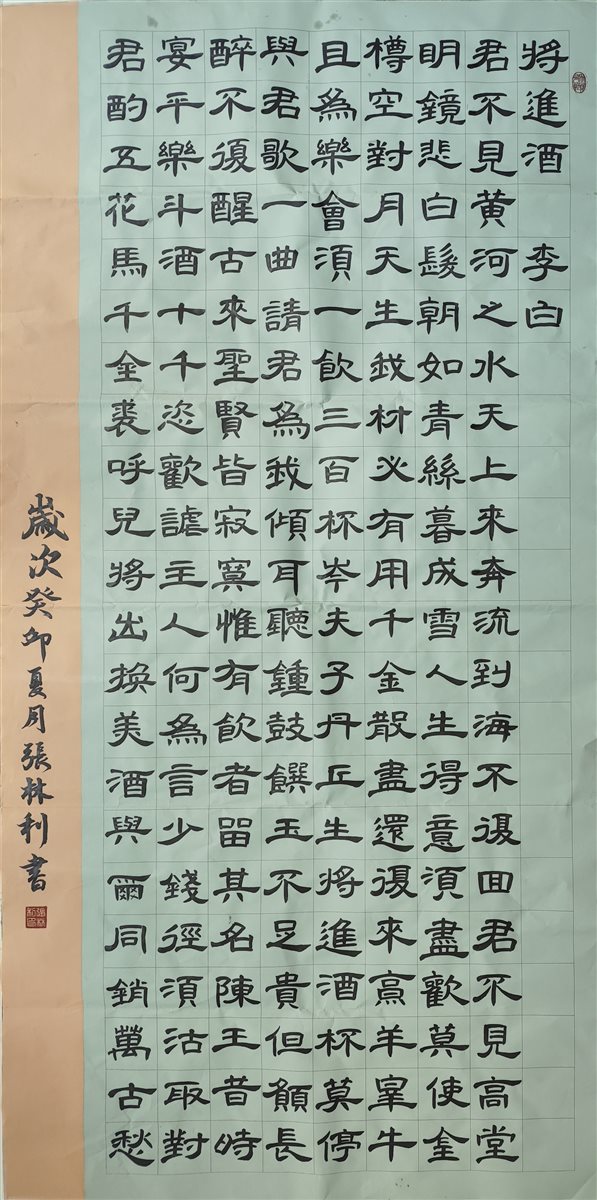 將進酒 李白
君不見黃河之水天上來奔流到海不復回君不見高堂
明鏡悲白髮朝如青絲暮成雪人生得意須盡歡莫使金
樽空對月天生我材必有用千金散盡還復來烹羊宰牛
且為樂會須一飲三百杯岑夫子丹丘生將進酒杯莫停
與君歌一曲請君為我傾耳聽鍾鼓饌玉不足貴但願長
醉不復醒古來聖賢皆寂寞惟有飲者留其名陳王昔時
宴平樂斗酒十千恣歡謔主人何為言少錢徑須沽取對
君酌五花馬千金裘呼兒將出換美酒與爾同銷萬古愁
歲次癸卯夏月張林利書